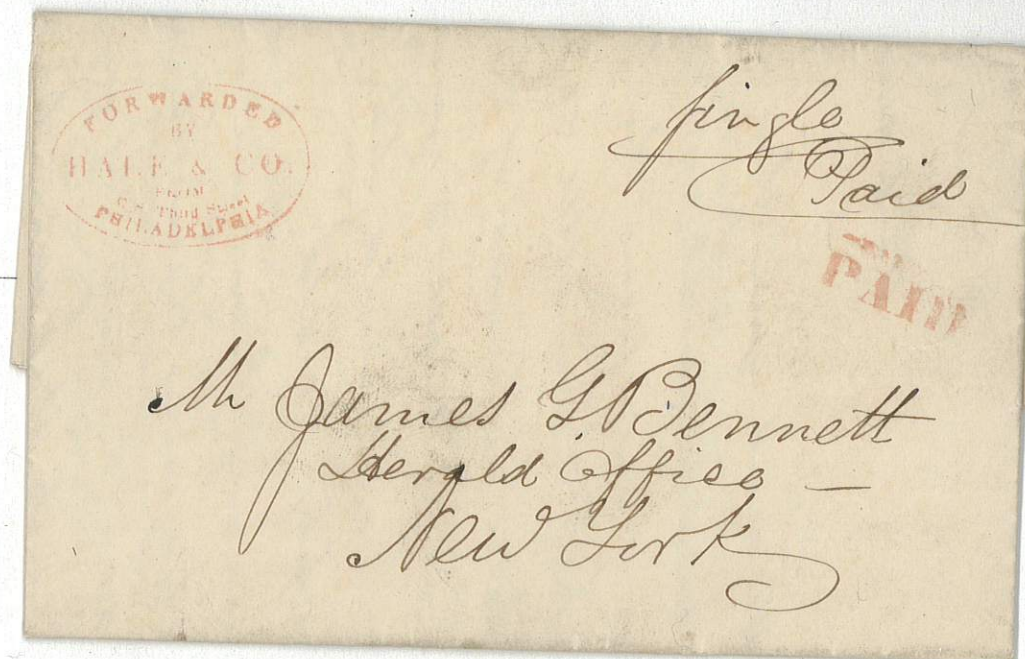 FORWARDED
BY
HALE & CO.
FROM
Third Street
PHILADELPHIA
Single
Paid
PAID
Mr James G Bennett
Herald Office —
New York